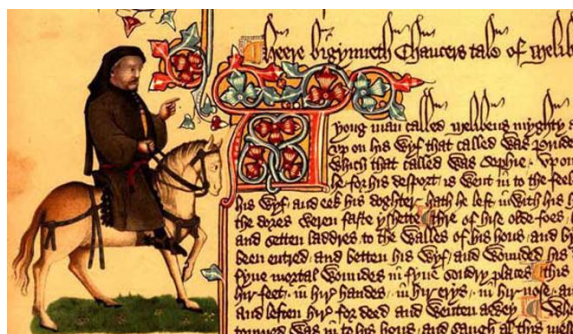 Heere bigynneth Chaucers tale of Melib
Yong man called Melibeus myghty a
up on his wyf that called was Prude
which that called was Sophie . Vpon
he for his desport is went in to the feel
his wyf and eek his doghter hath he left in with his h
the dores weren faste yshette thre of hise olde foes
and setten laddres to the walles of his hous and by
been entred and betten his wyf and wounded his
fyue mortal woundes in fyue sondry places this
hir feet in hir handes in hir erys in hir nose an
and leften hir for deed and wenten awey Whe
was in to his hous and saugh al this